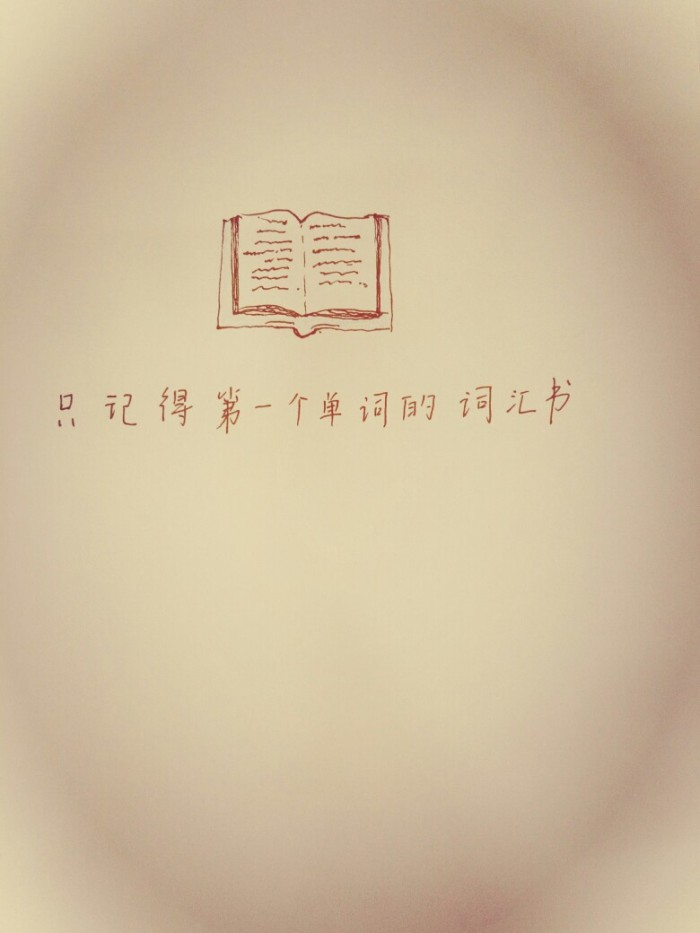 只记得第一个单词的词汇书